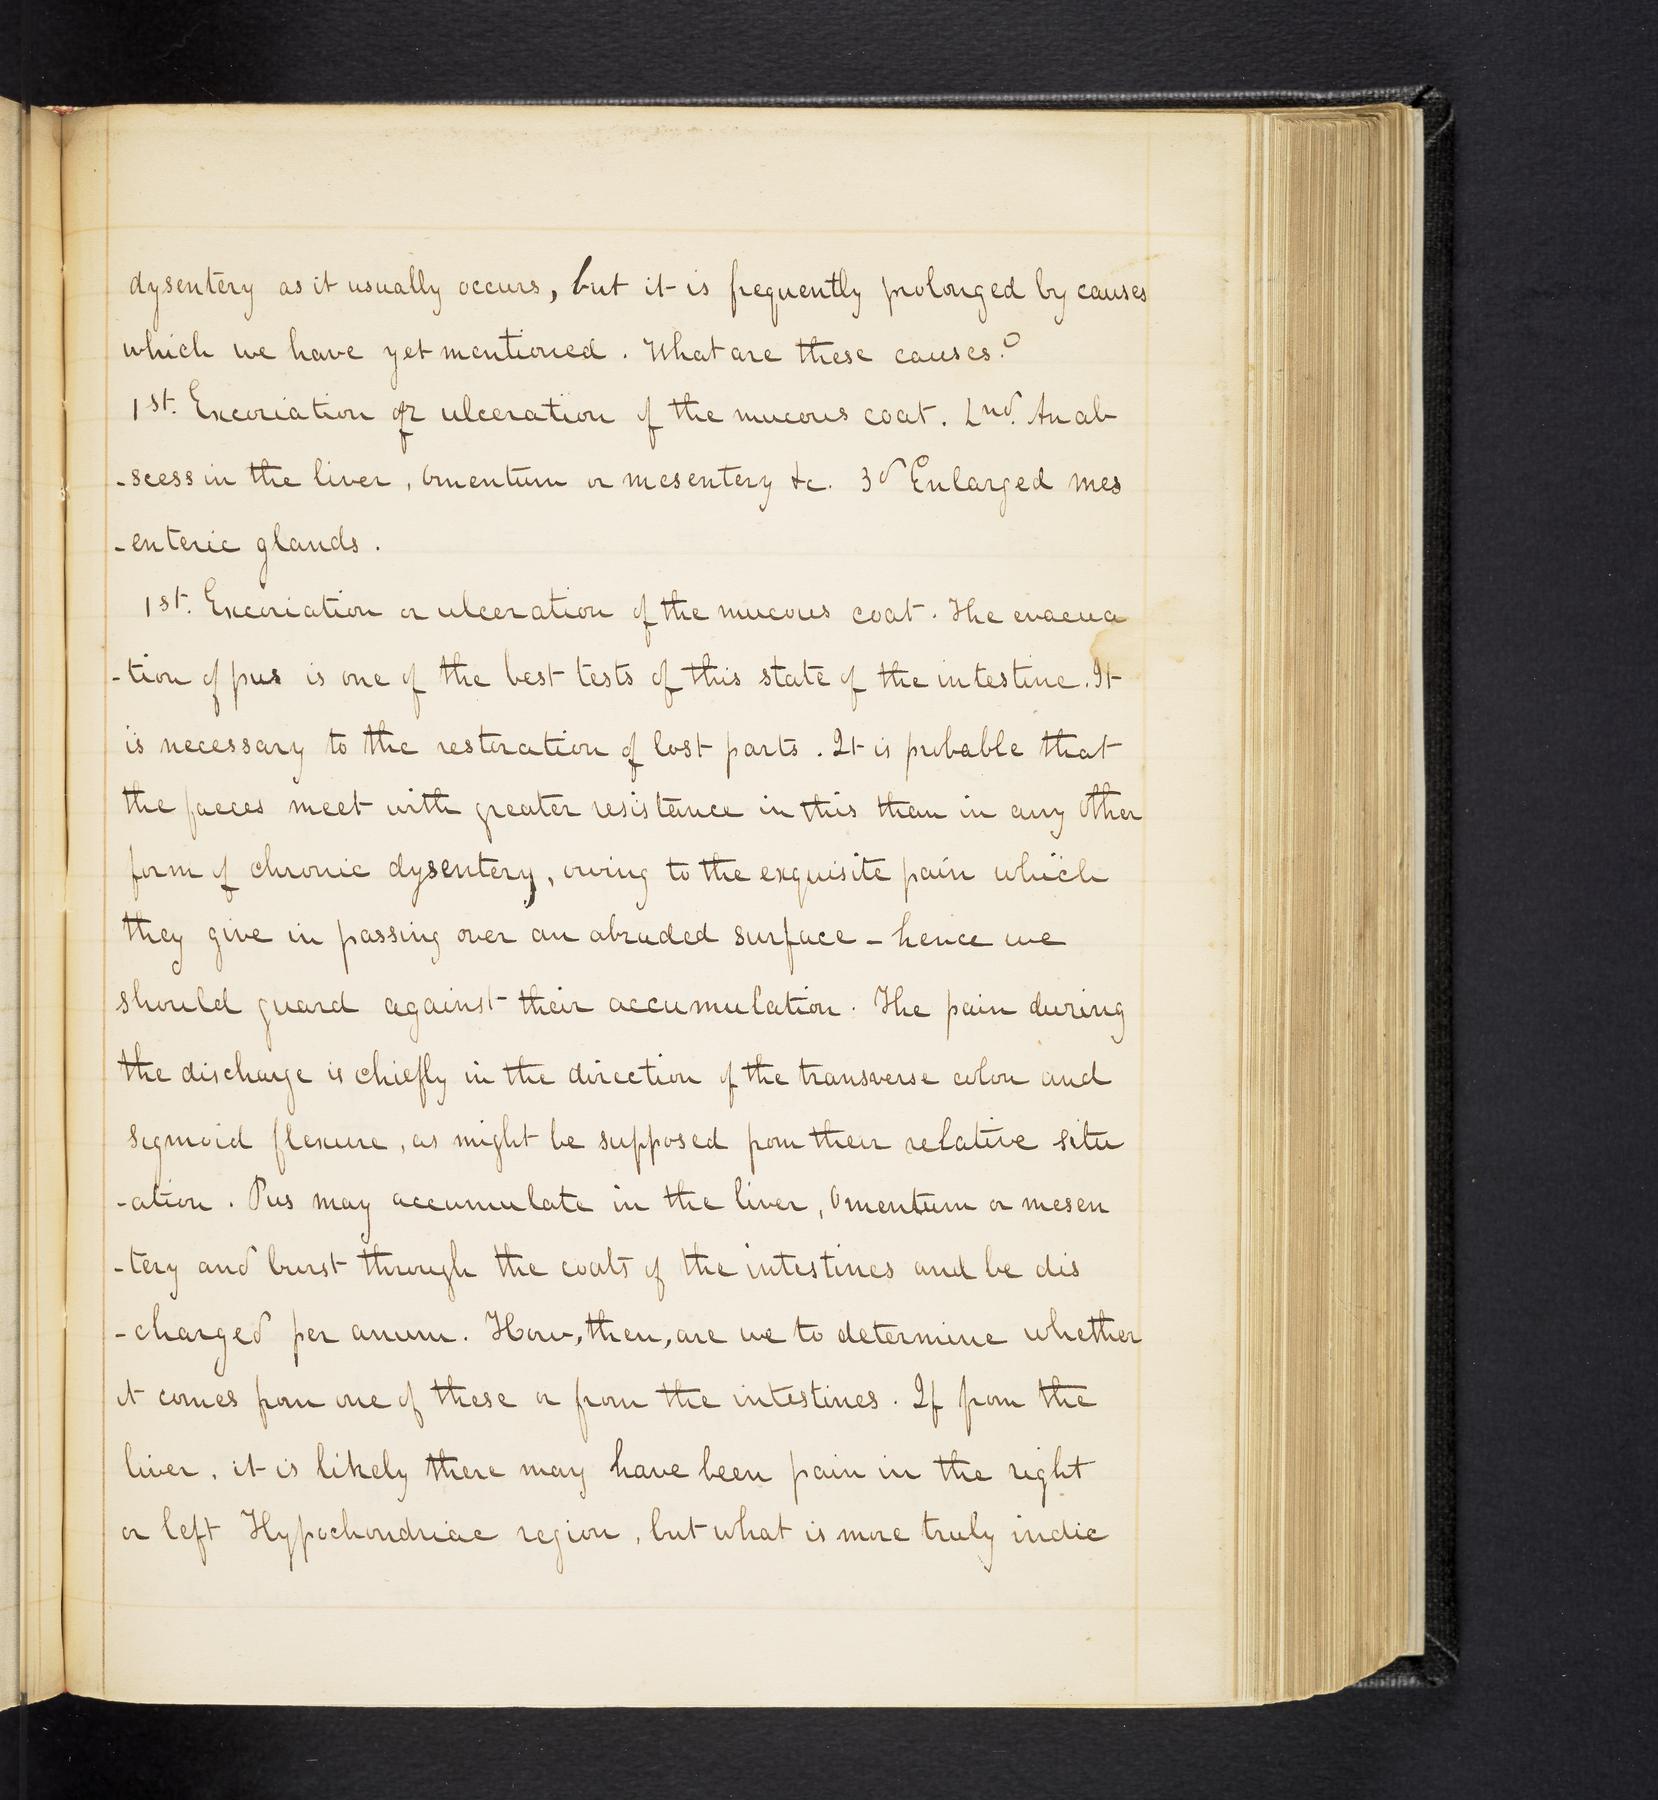 dysentery as it usually occurs, but it is frequently prolonged by causes
which we have yet mentioned. What are these causes?
1st. Excoriation or ulceration of the mucous coat. 2nd. An ab
-scess in the liver, Omentum or mesentery &c. 3d Enlarged mes
-enteric glands.
1st. Excoriation or ulceration of the mucous coat. The evacua
-tion of pus is one of the best tests of this state of the intestine. It
is necessary to the restoration of lost parts. It is probable that
the faeces meet with greater resistance in this than in any Other
form of chronic dysentery, owing to the exquisite pain which
they give in passing over an abraded surface - hence we
should guard against their accumulation. The pain during
the discharge is chiefly in the direction of the transverse colon and
sigmoid flexure, as might be supposed from their relative situ
-ation. Pus may accumulate in the liver, Omentum or mesen
-tery and burst through the coats of the intestines and be dis
-charged per anum. How, then, are we to determine whether
it comes from one of these or from the intestines. If from the
liver, it is likely there may have been pain in the right
or left Hypochondriac region, but what is more truly indic